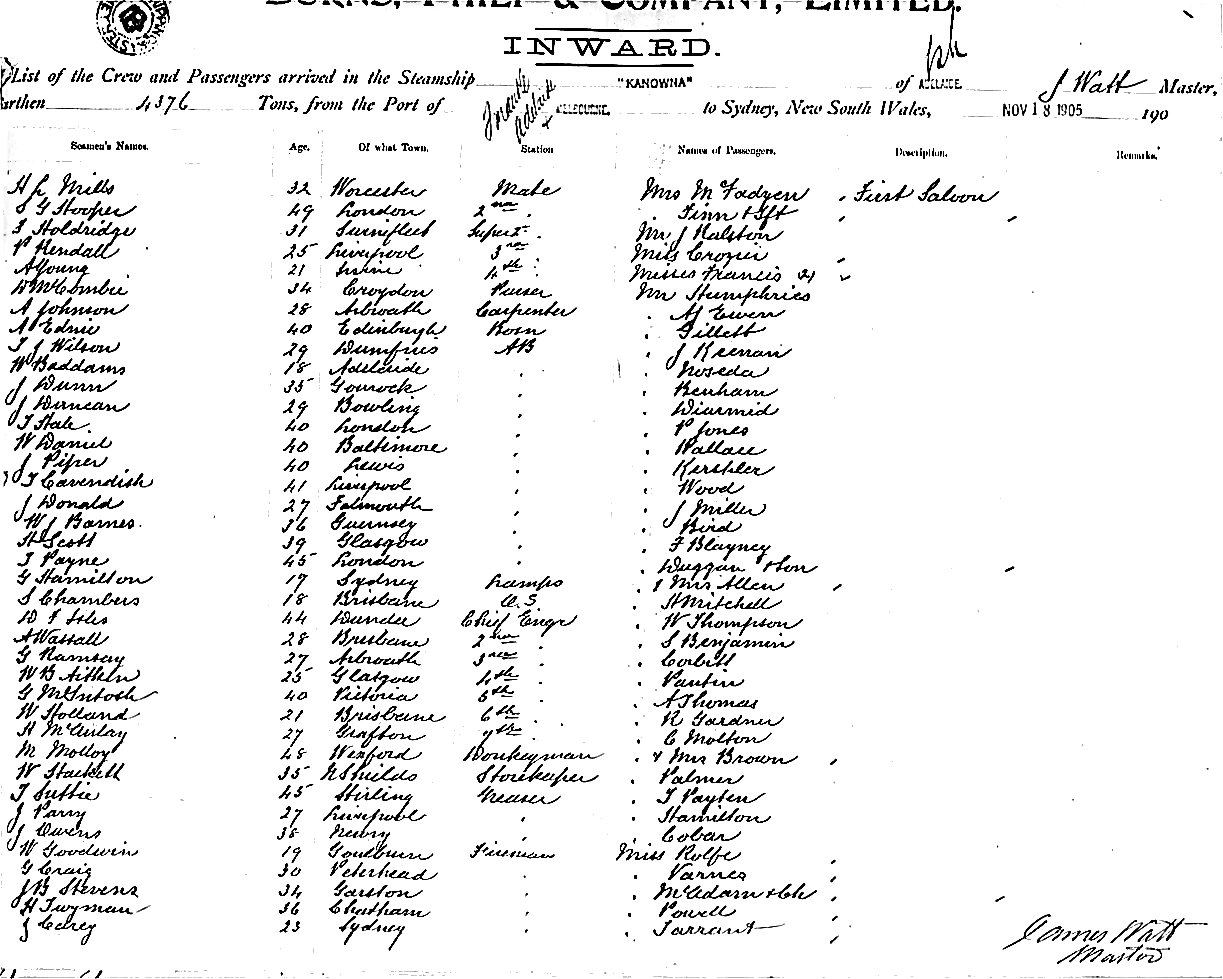 BURNS, PHILP & COMPANY, LIMITED.
INWARD.
List of the Crew and Passengers arrived in the Steamship "KANOWNA" of ADELAIDE. J Watt Master,
Burthen 4376 Tons, from the Port of Fremantle Adelaide + MELBOURNE. to Sydney, New South Wales, NOV 18 1905 190
Seamen's Names. Age. Of what Town. Station Names of Passengers. Description. Remarks.
H L Mills 32 Worcester Mate Mrs McFadyen First Saloon
S G Hooper 49 London 2nd " Finn & Sft
S Holdridge 31 Surfleet Super " Mr J Ralston
P Kendall 25 Liverpool 3rd " Miss Crozier
A Young 21 Irvine 4th " Misses Francis 2
D McCombie 34 Croydon Purser Mr Humphries
A Johnson 28 Arbroath Carpenter " A J Ewen
A Ednie 40 Edinburgh Bosn " Gillett
T J Wilson 29 Dumfries AB " J Keenan
W Baddams 18 Adelaide " " Noseda
J Dunn 35 Gourock " " Benham
J Duncan 29 Bowling " " Diarmid
T Hale 40 London " " P Jones
W Daniel 40 Baltimore " " Wallace
J Piper 40 Lewis " " Kershler
T Cavendish 41 Liverpool " " Wood
J Donald 27 Falmouth " " J Miller
W J Barnes. 36 Guernsey " " Bird
H Scott 39 Glasgow " " F Blayney
T Payne 45 London " " Duggan & Son
G Hamilton 17 Sydney Lamps " & Mrs Allen
S Chambers 18 Brisbane O.S " H Mitchell
D F Isles 44 Dundee Chief Engr " W Thompson
A Wassall 28 Brisbane 2nd " " S Benjamin
G Ramsay 27 Arbroath 3rd " " Corbett
W B Aitken 25 Glasgow 4th " " Pantin
G McIntosh 40 Victoria 5th " " A Thomas
W Holland 21 Brisbane 6th " " R Gardner
H McAulay 27 Grafton 7th " " C Molton
M Molloy 48 Wexford Donkeyman " & Mrs Brown
W Stackell 35 N Shields Storekeeper " Palmer
T Suttie 45 Stirling Greaser " T Payten
J Parry 27 Liverpool " " Hamilton
J Owens 38 Newry " " Cobar
W Goodwin 19 Goulburn Fireman Miss Rolfe
G Craig 30 Peterhead " " Varnes
J B Stevens 34 Garston " " McAdam & Ch
H Twyman 36 Chatham " " Powell
J Carey 23 Sydney " " Tarrant
James Watt
Master